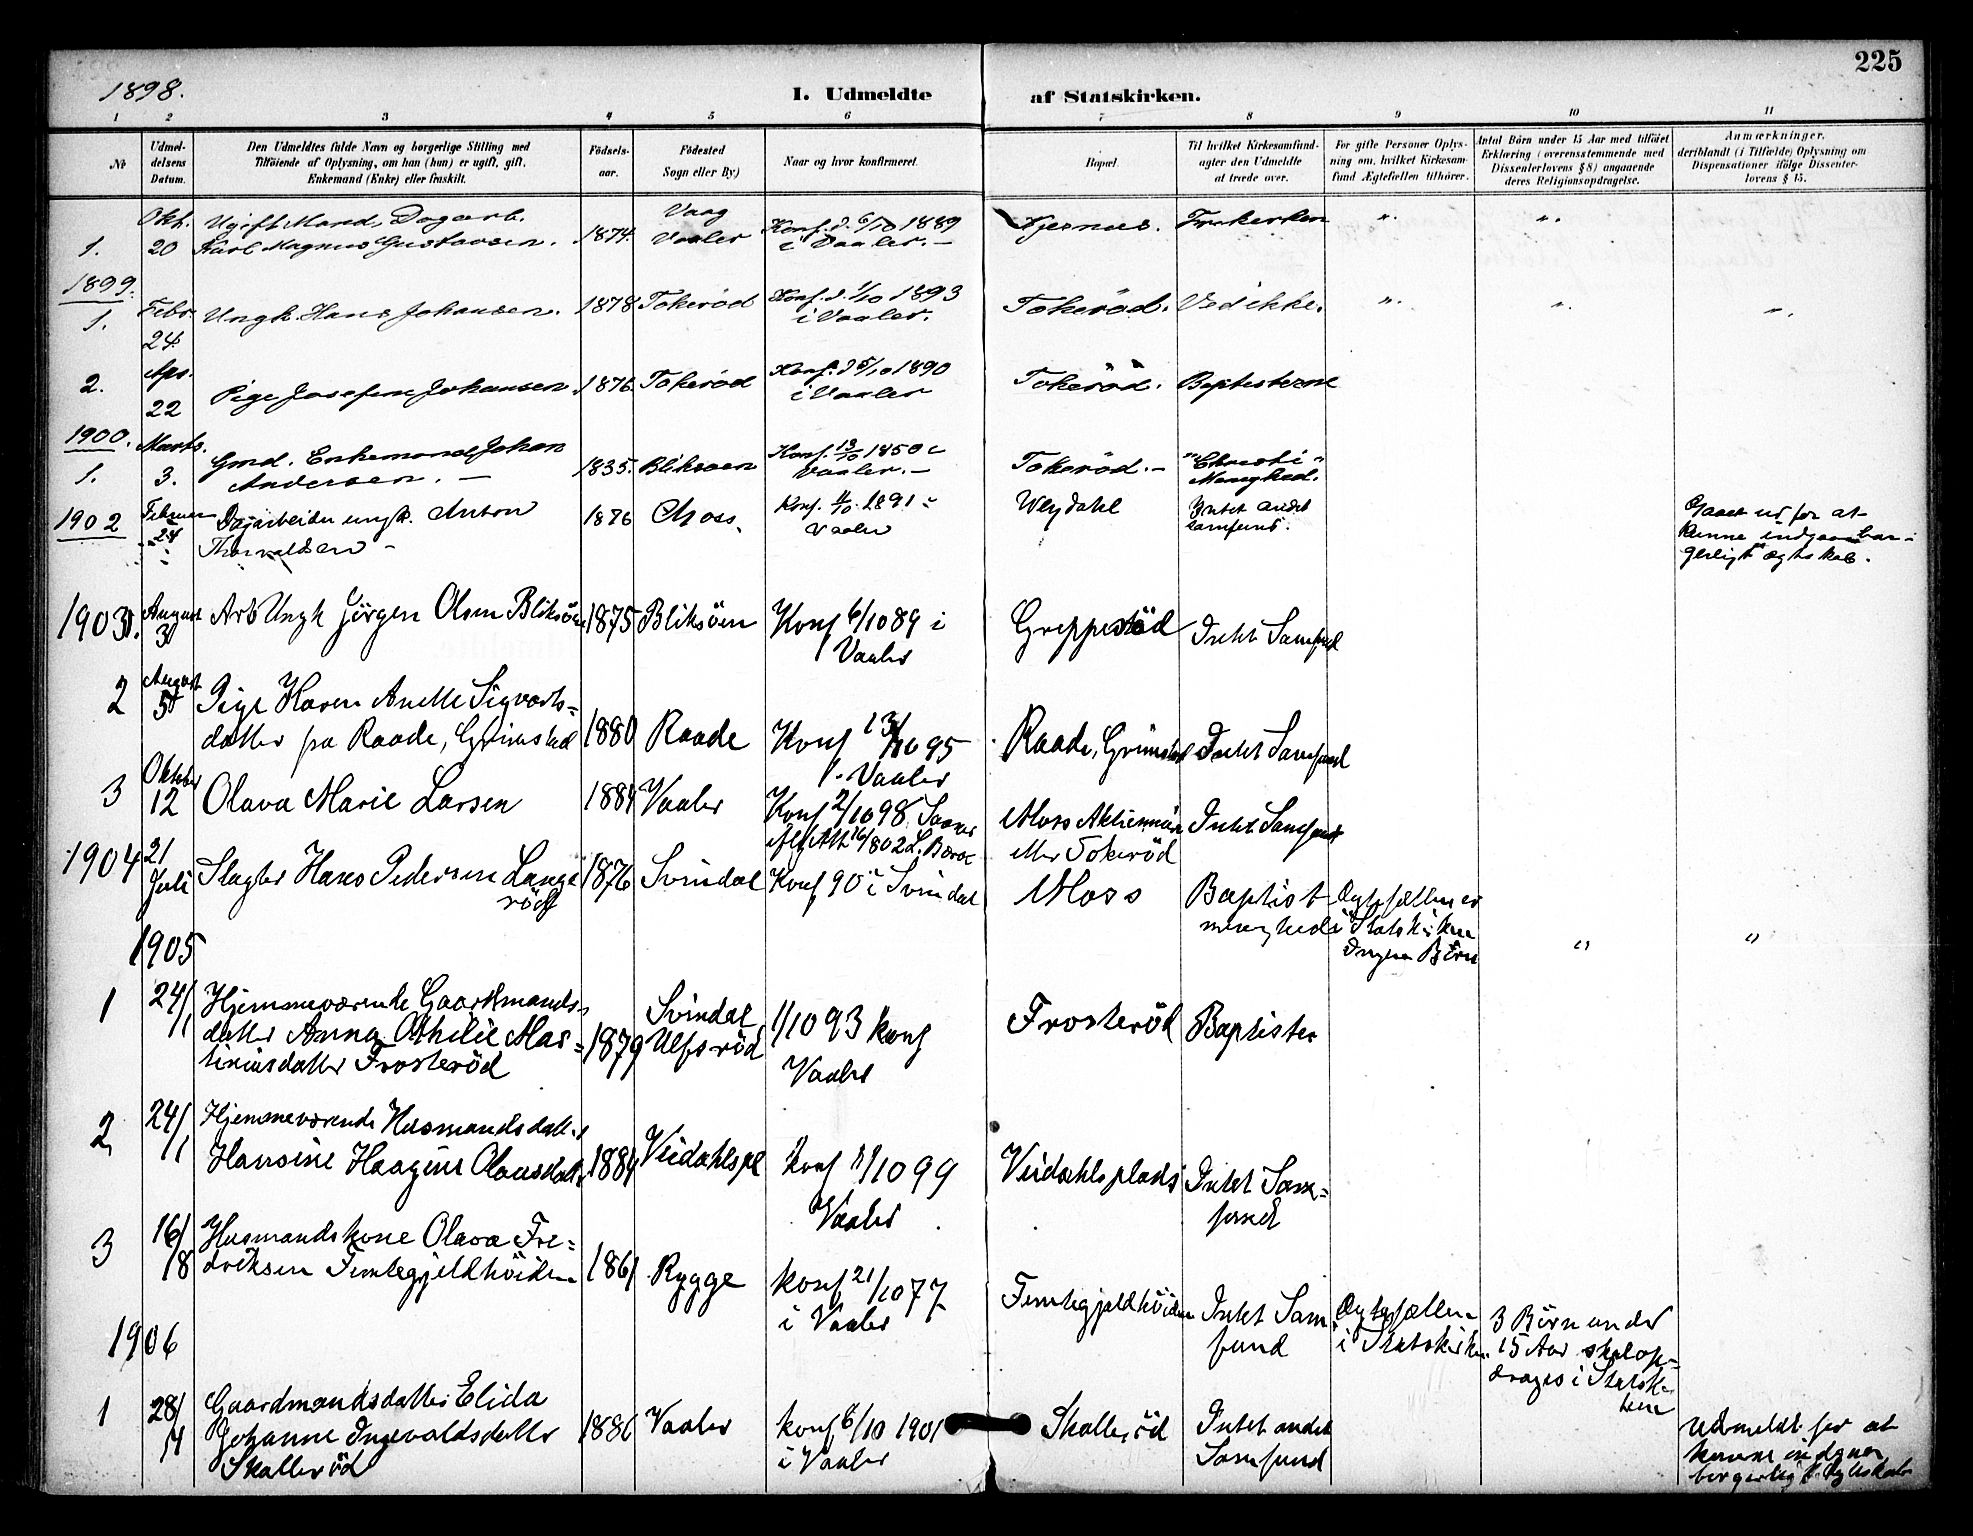 225
1898.
I. Udmeldte af Statskirken.
1 2 3 4 5 6 7 8 9 10 11
No
Udmel-
delsens
Datum.
Den Udmeldtes fulde Navn og borgerlige Stilling med
Tilføiende af Oplysning, om han (hun) er ugift, gift,
Enkemand (Enke) eller fraskilt.
Fødsels-
aar.
Fødested
Sogn eller By)
Naar og hvor konfirmeret.
Bopæl.
Til hvilket Kirkesamfund-
agter den Udmeldte
at træde over.
For gifte Personer Oplys-
ning om, hvilket Kirkesam-
fund Ægtefællen tilhører.
Antal Børn under 15 Aar med tilføiet
Erklæring (overensstemmende med
Dissenterlovens § 8) angaaende
deres Religionsopdragelse.
Anmærkninger,
deriblandt (i Tilfælde) Oplysning om
Dispensationer ifølge Dissenter-
lovens § 15.
1. Okt.
20
Ugift Mand, Dagarb.
Karl Magnus Gustavsen.
1874
Vaag
Vaaler
Konf. d. 6/10 1889
i Vaaler. —
Kjernes. Frikirken " "
1899.
1. Febr.
24
Ungk. Hans Johansen. 1878 Tokeröd
Konf. d. 1/10 1893
i Vaaler.
Tokeröd. Ved ikke. " " "
2. Apr.
22
Pige Josefine Johansen 1876 Tokeröd
Konf. d 5/10 1890
i Vaaler
Tokeröd. Baptisterne
1900.
1. Marts.
3.
Gmd. Enkemand Johan
Andersen. —
1835. Bliksöen
Konf. 13/10 1850 i
Vaaler. —
Tokeröd. —
"Christi"
Menighed.
1902 Februar
24
Dagarbeider ungk. Anton
Thorvaldsen —
1876 Moss.
Konf. 4/10. 1891 i
Vaaler
Weydahl
Intet andet
samfund.
Gaaet ud for at
kunne indgaa bor-
gerligt ægteskab.
1903 1. August
3
Arb Ungk Jörgen Olsen Bliksöen 1875 Bliksöen
Konf 6/10 89 i
Vaaler
Greppestöd Intet Samfund
2 August
5
Pige Karen Anette Sigvarts=
datter fra Raade, Grimstad
1880 Raade
Konf 13/10 95
i Vaaler
Raade, Grimstad Intet Samfund
3 Oktober
12
Olava Marie Larsen 1884 Vaaler
Konf 2/10 98 Saaner
iflg Att 26/8 02 L. Barae
Moss Aktiemölle
eller Tokeröd
Intet Samfund
1904 21
Juli
Slagter Hans Pedersen Lange
röd
1876 Svindal Konf 90 i Svindal
Moss
Baptist
menighed
Ægtefællen er
i Statskirken
Ingen Börn
" "
1905
1 24/1
Hjemmeværende Gaardmands-
datter Anna Othilie Mar=
tiniusdatter Frosteröd
1879
Svindal
Ulfsröd
1/10 93 konf
Vaaler
Frosteröd Baptister
2 24/1
Hjemmeværende Husmandsdatter
Hansine Haagine Olausdatt.
1884 Veidahlspl
konf 1/10 99
Vaaler
Veidahlsplads
Intet Sam=
fund
3 16/8
Husmandskone Olava Fre=
driksen Femtegjeldhöiden
1861 Rygge
konf 21/10 77
i Vaaler
Femtegjeldhöiden
Intet Sam
fund
Ægtefællen
i Statskirken
3 Börn under
15 Aar skal op-
drages i Statskir
ken
1906
1 28/4
Gaardmandsdatter Elida
Johanne Ingevaldsdatter
Skalleröd
1886 Vaaler
konf 6/10 1901
i Vaaler
Skalleröd
Intet andet
Samfund
Udmeldt for at
kunne indgaa
borgerligt Ægteskab